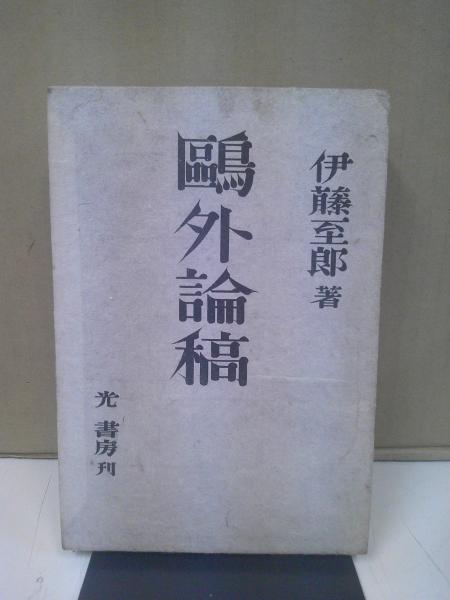 伊藤至郎 著
鷗外論稿
光書房刊